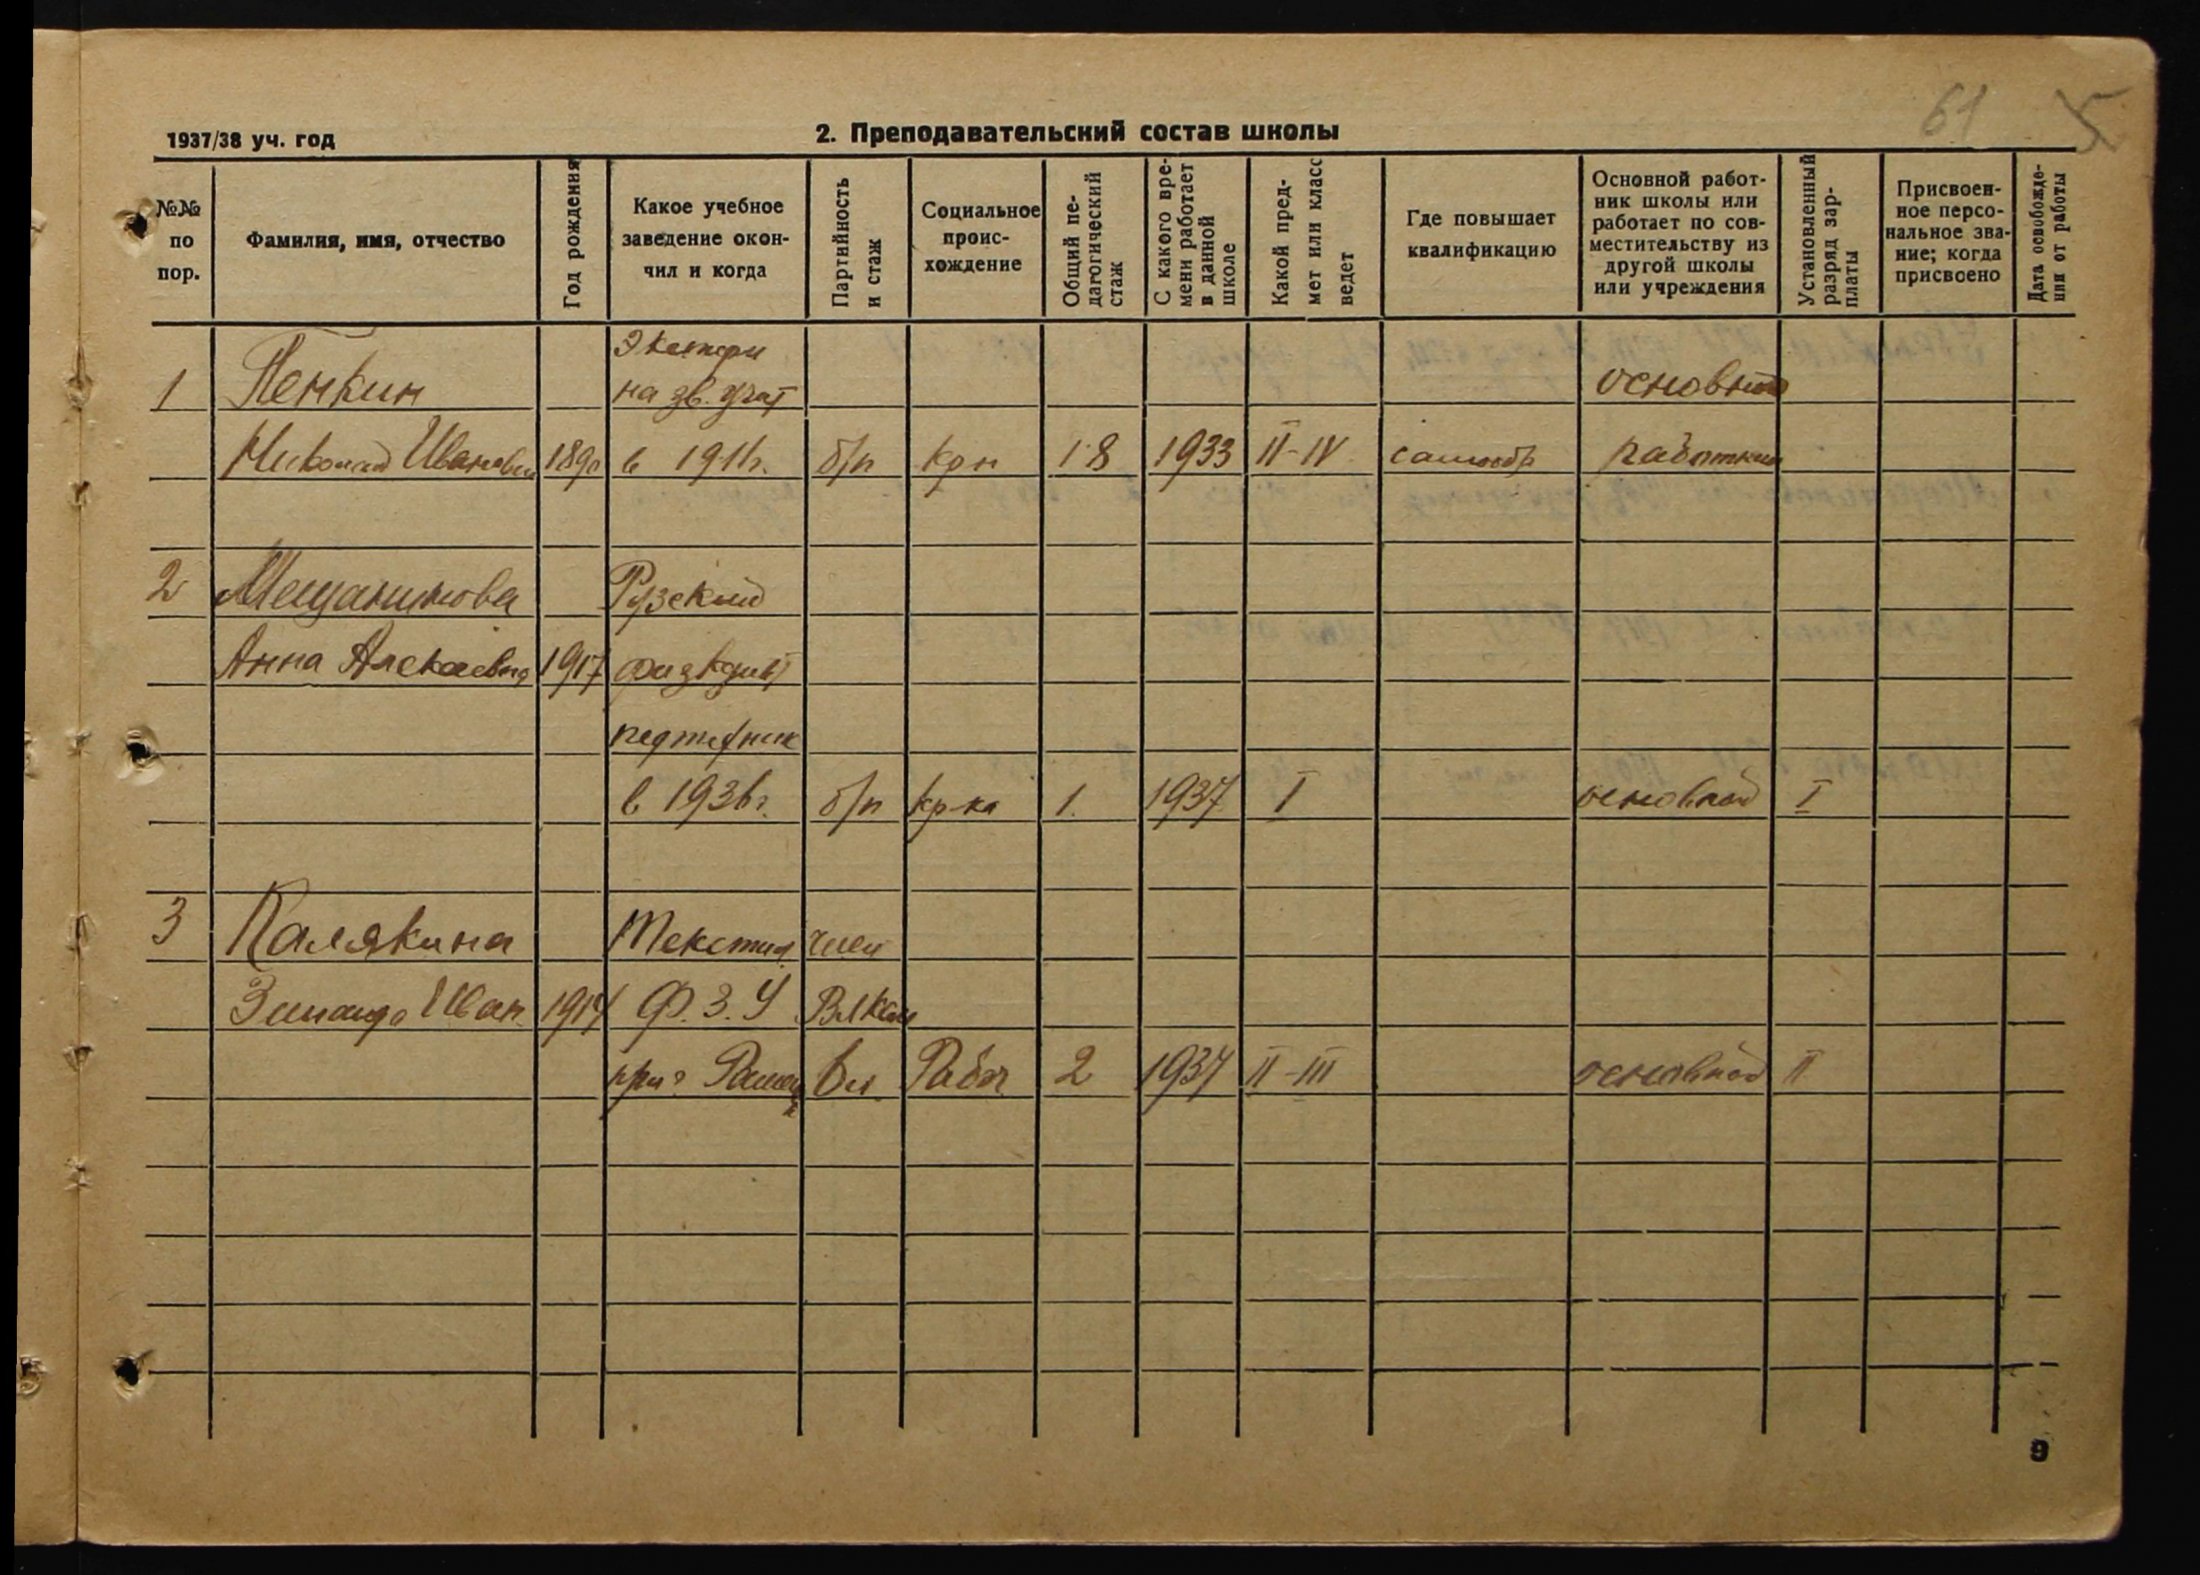 61 5
1937/38 уч. год
2. Преподавательский состав школы
№№ по пор.
Фамилия, имя, отчество
Год рождения
Какое учебное заведение окончил и когда
Партийность и стаж
Социальное происхождение
Общий педагогический стаж
С какого времени работает в данной школе
Какой предмет или класс ведет
Где повышает квалификацию
Основной работник школы или работает по совместительству из другой школы или учреждения
Установленный разряд зарплаты
Присвоенное персональное звание; когда присвоено
Дата освобождения от работы
Экстерн
1 Пенкин на зв. учат основной
Николай Иванович 1890 в 1911г. б/п кр-н 18 1933 II-IV самообр работник
2 Мещанинова Рузский
Анна Алексеевна 1917 физкульт
педтехник
в 1936г. б/п кр-ка 1. 1937 I основной I
3 Калякина Текстил член
Зинаида Иван. 1914 Ф.З.У
при Раменск Рабоч 2 1937 II-III основной II
9